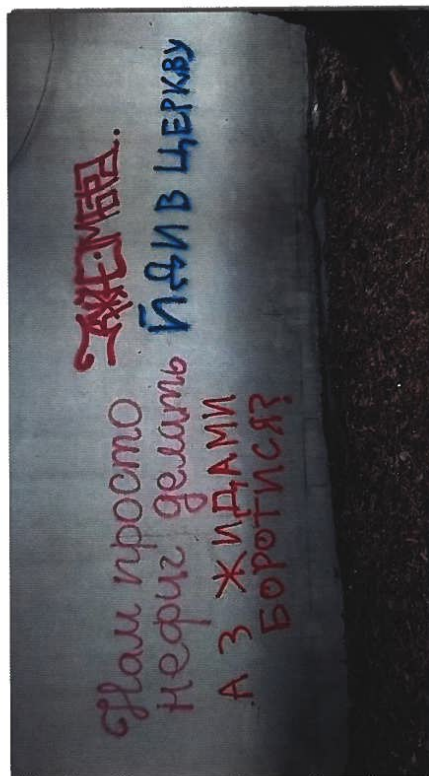 Нам просто
нефиг делать ЙДИ В ЦЕРКВУ
А З ЖИДАМИ
БОРОТИСЯ?